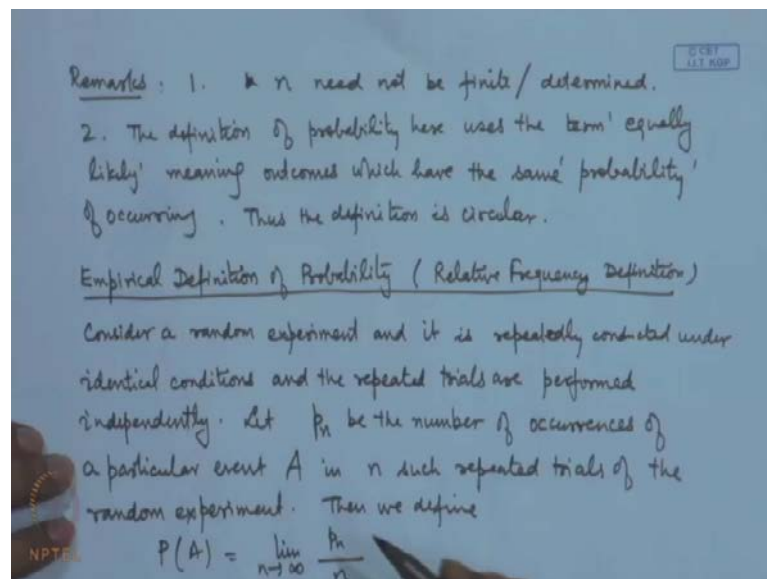 © CET
I.I.T. KGP
Remarks : 1. n need not be finite / determined.
2. The definition of probability here uses the term 'equally
likely' meaning outcomes which have the same 'probability'
of occurring . Thus the definition is circular.
Empirical Definition of Probability ( Relative Frequency Definition )
Consider a random experiment and it is repeatedly conducted under
identical conditions and the repeated trials are performed
independently. Let pn be the number of occurrences of
a particular event A in n such repeated trials of the
random experiment. Then we define
P(A) = lim n→∞ pn / n
NPTEL